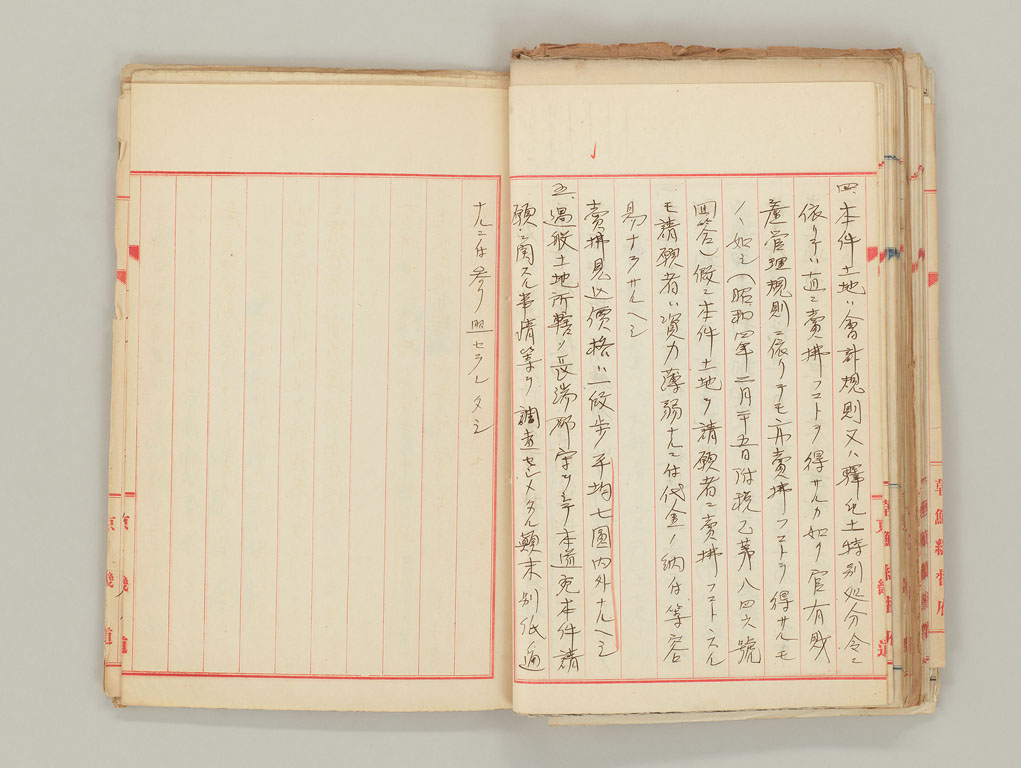 四、本件土地ハ會計規則又ハ驛屯土特別処分令ニ
依リテハ直ニ賣拂フコトヲ得サルカ如ク官有財
產管理規則ニ依リテモ亦賣拂フコトヲ得サルモ
ノノ如シ(昭和四年二月二十五日附税乙第八四六號
回答)假ニ本件土地ヲ請願者ニ賣拂フコトスル
モ請願者ハ資力薄弱ナルニ付代金ノ納付等容
易ナラサルヘシ
賣拂見込價格ハ一段歩平均七圓内外ナルヘシ
五、過般土地所轄ノ長湍郡守ヲシテ本道宛本件請
願ニ関スル事情等ヲ調査セシメタル顛末別紙通
ナルニ付参照セラレタシ
朝鮮總督府
京畿道